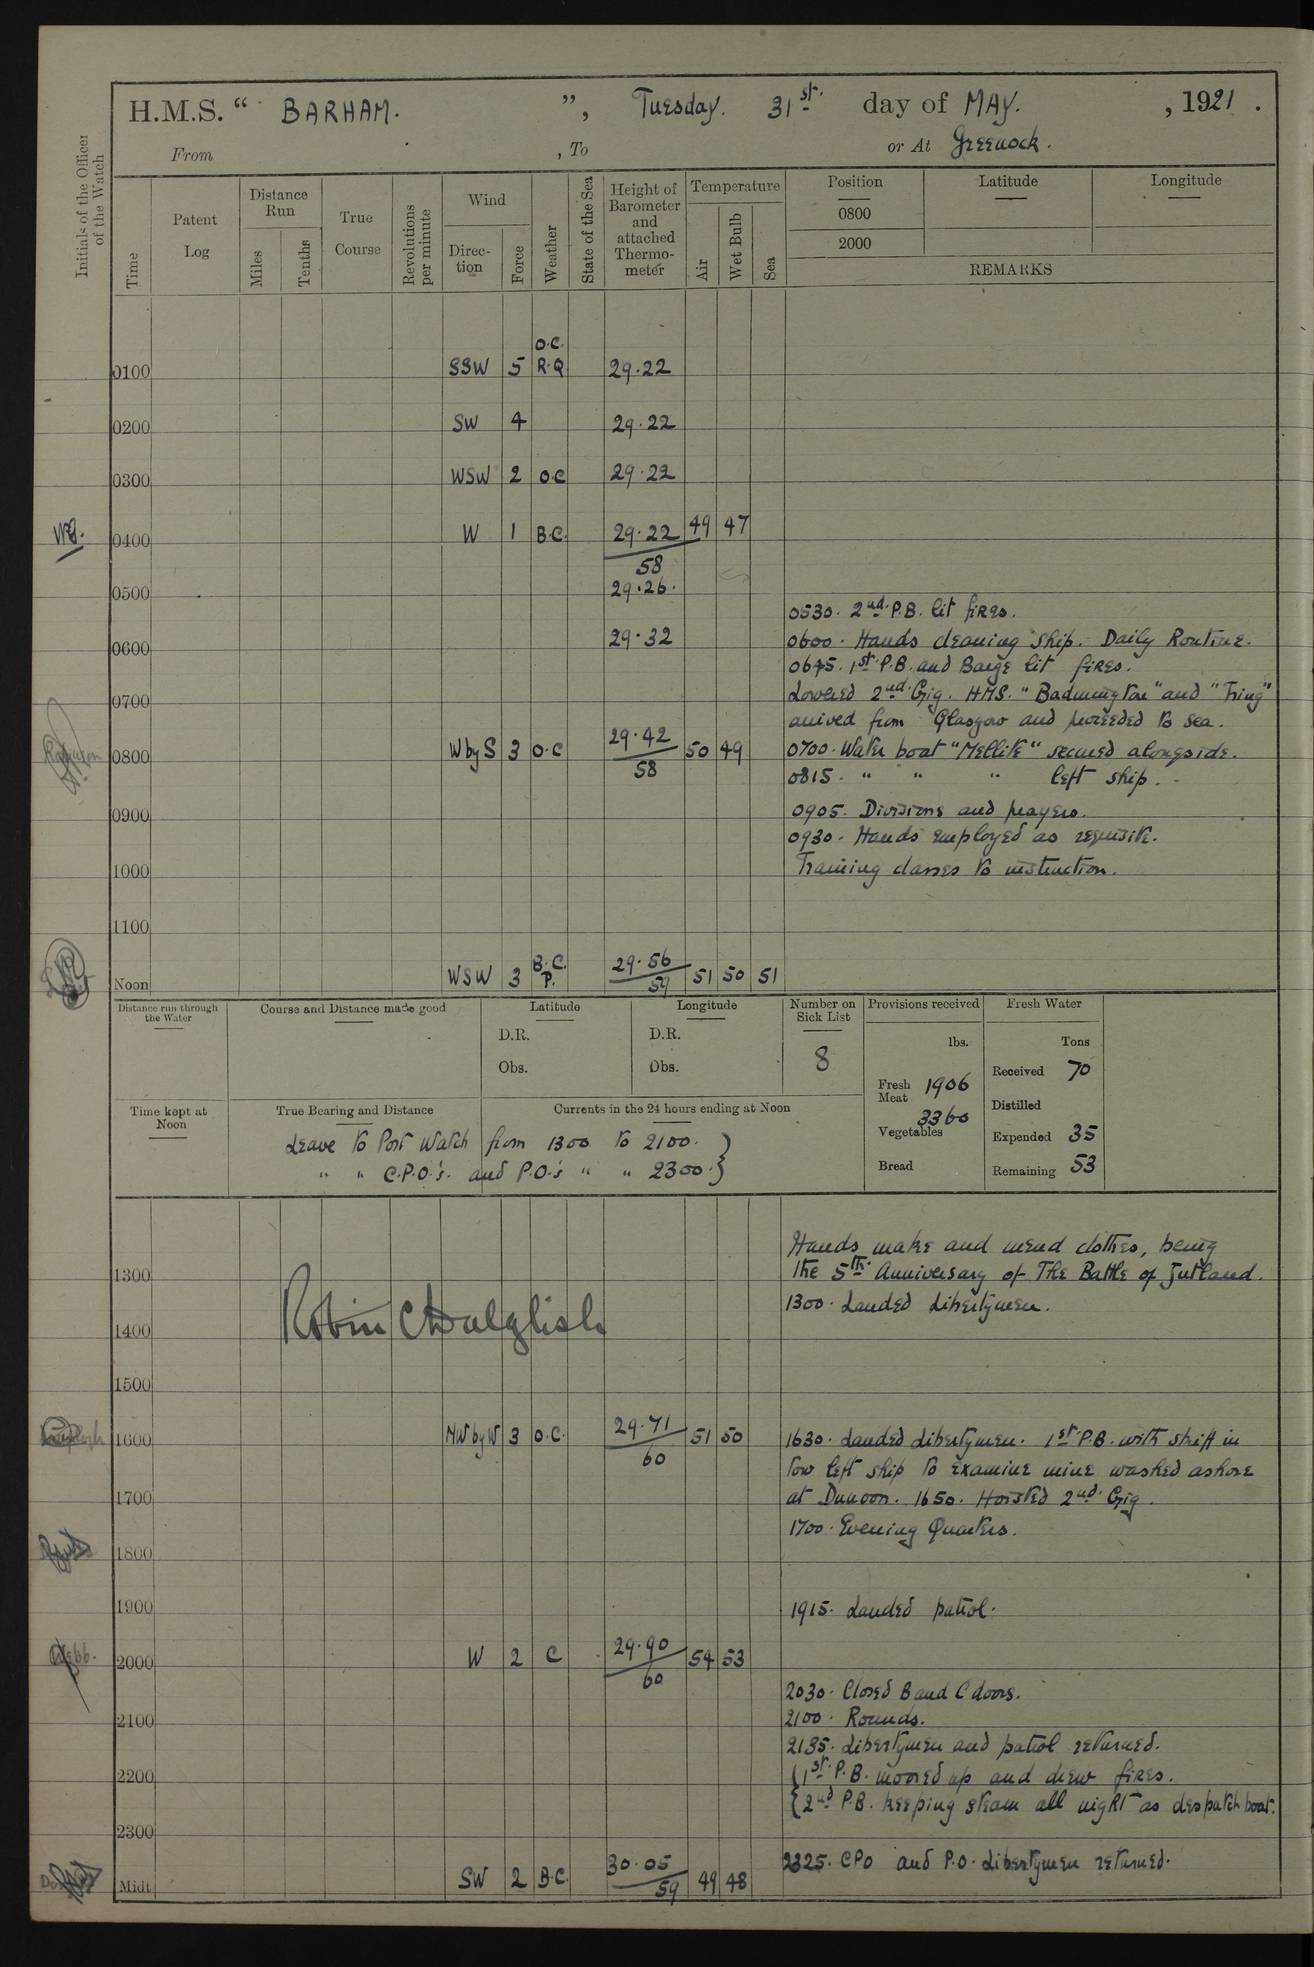 H.M.S. “ BARHAM. ”, Tuesday. 31st. day of MAY. , 1921 .
From , To or At Greenock.
Initials of the Officer of the Watch
Time
Patent Log
Distance Run
Miles
Tenths
True Course
Revolutions per minute
Wind
Direc-tion
Force
Weather
State of the Sea
Height of Barometer and attached Thermo-meter
Temperature
Air
Wet Bulb
Sea
Position Latitude Longitude
0800
2000
REMARKS
O.C.
0100 SSW 5 R.Q. 29.22
0200 SW 4 29.22
0300 WSW 2 O.C 29.22
0400 W 1 B.C. 29.22 49 47
58
0500 29.26.
0530. 2nd. P.B. lit fires.
0600 29.32 0600. Hands cleaning ship. Daily Routine.
0645. 1st. P.B. and Barge lit fires.
0700 Lowered 2nd. Gig. HMS. “Badmington” and “Tring”
arrived from Glasgow and proceeded to sea.
0800 W by S 3 O.C 29.42 50 49 0700. Water boat “Mellite” secured alongside.
58
0815. “ “ “ left ship.
0900 0905. Divisions and prayers.
0930. Hands employed as requisite.
1000 Training classes to instruction.
1100
Noon WSW 3 B.C. P. 29.56 51 50 51
59
Distance run through the Water
Course and Distance made good
Latitude
D.R.
Obs.
Longitude
D.R.
Obs.
Number on Sick List
8
Provisions received
lbs.
Fresh Meat 1906
3360
Vegetables
Bread
Fresh Water
Tons
Received 70
Distilled
Expended 35
Remaining 53
Time kept at Noon
True Bearing and Distance
Currents in the 24 hours ending at Noon
Leave to Port Watch from 1300 to 2100. }
“ “ C.P.O.'s. and P.O.'s “ “ 2300. }
Hands make and mend clothes, being
1300 the 5th. Anniversary of The Battle of Jutland.
1300. Landed Libertymen.
Robin C Dalglish
1400
1500
1600 NW by W 3 O.C. 29.71 51 50 1630. Landed Libertymen. 1st P.B. with skiff in
60
tow left ship to examine mine washed ashore
1700 at Dunoon. 1650. Hoisted 2nd. Gig.
1700. Evening Quarters.
1800
1900 1915. Landed patrol.
Webb.
2000 W 2 C 29.90 54 53
60
2030. Closed B and C doors.
2100 2100. Rounds.
2135. Libertymen and patrol returned.
2200 { 1st. P.B. moored up and drew fires.
{ 2nd P.B. keeping steam all night as despatch boat.
2300
2325. CPO and P.O. Libertymen returned.
Midt. SW 2 B.C. 30.05 49 48
59